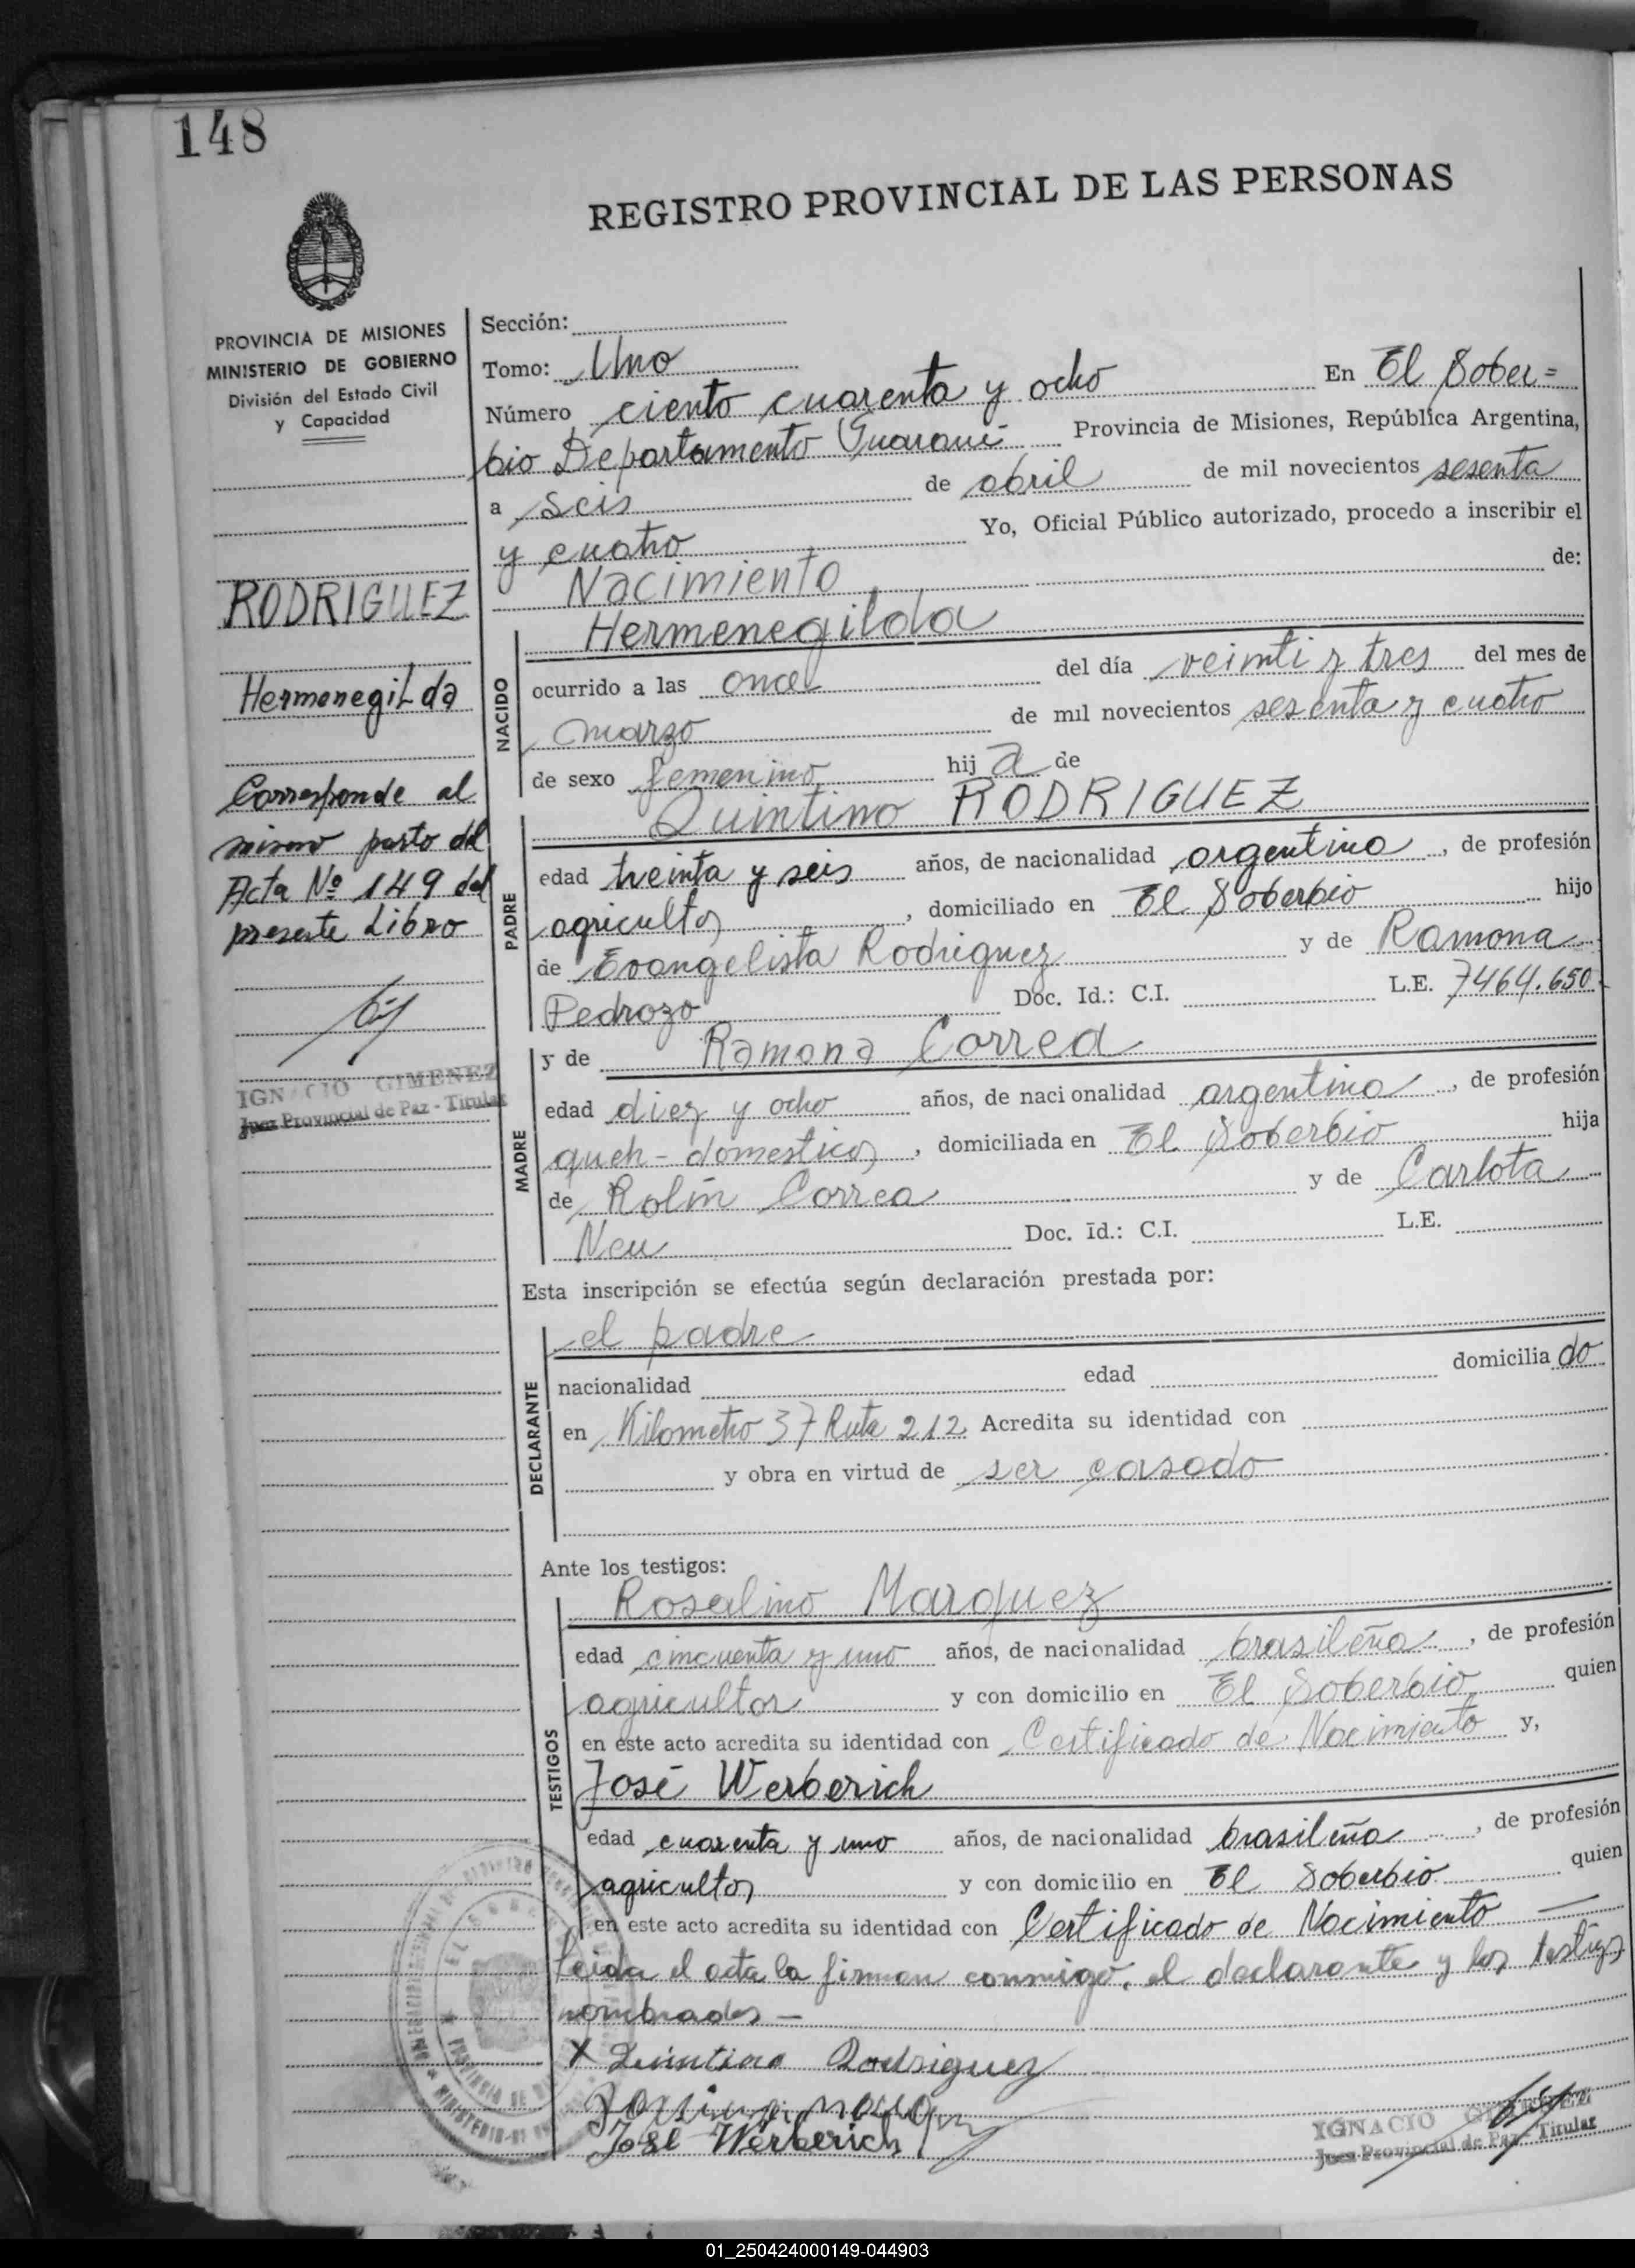 148
REGISTRO PROVINCIAL DE LAS PERSONAS
PROVINCIA DE MISIONES
MINISTERIO DE GOBIERNO
División del Estado Civil
y Capacidad
RODRIGUEZ
Hermenegilda
Corresponde al
mismo parto del
Acta Nº 149 del
presente Libro
IGNACIO GIMENEZ
Juez Provincial de Paz - Titular
Sección:
Tomo: Uno
Número ciento cuarenta y ocho En El Sober=
bio Departamento Guaraní Provincia de Misiones, República Argentina,
a seis de abril de mil novecientos sesenta
y cuatro Yo, Oficial Público autorizado, procedo a inscribir el
Nacimiento de:
NACIDO
Hermenegilda
ocurrido a las once del día veinti y tres del mes de
marzo de mil novecientos sesenta y cuatro
de sexo femenino hij a de
PADRE
Quintino RODRIGUEZ
edad treinta y seis años, de nacionalidad argentino, de profesión
agricultor, domiciliado en El Soberbio hijo
de Evangelista Rodriguez y de Ramona
Pedrozo Doc. Id.: C.I. L.E. 7464.650
MADRE
y de Ramona Correa
edad diez y ocho años, de nacionalidad argentina, de profesión
queh-domesticos, domiciliada en El Soberbio hija
de Rolin Correa y de Carlota
Neu Doc. Id.: C.I. L.E.
Esta inscripción se efectúa según declaración prestada por:
DECLARANTE
el padre
nacionalidad edad domicilia do
en Kilometro 37 Ruta 212 Acredita su identidad con
y obra en virtud de ser casado
Ante los testigos:
TESTIGOS
Rosalino Marquez
edad cincuenta y uno años, de nacionalidad brasileña, de profesión
agricultor y con domicilio en El Soberbio quien
en este acto acredita su identidad con Certificado de Nacimiento y,
José Werberich
edad cuarenta y uno años, de nacionalidad brasileña, de profesión
agricultor y con domicilio en El Soberbio quien
en este acto acredita su identidad con Certificado de Nacimiento
Leida el acta la firman conmigo, el declarante y los testigos
nombrados -
X Quintino Rodriguez
José Werberich
IGNACIO GIMENEZ
Juez Provincial de Paz - Titular
EL SOBERBIO
01_250424000149-044903